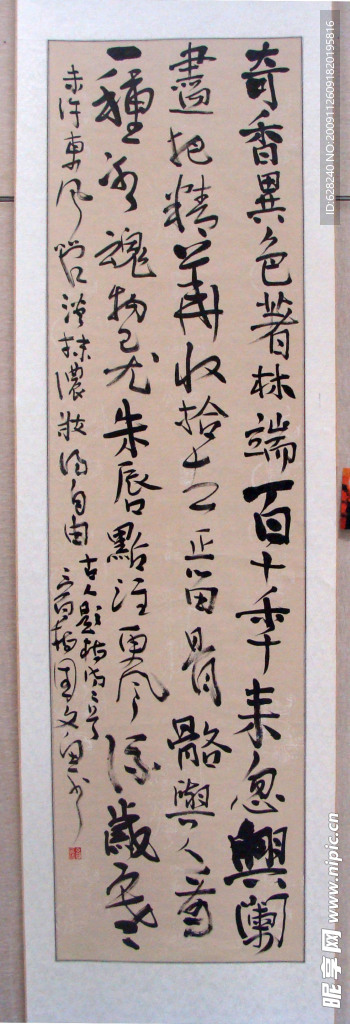 奇香異色著林端百十年来忽興闌
盡把精華收拾去正留骨骼與人看
一種冰魂物已尤朱唇點注更風流歲寒
未許東風管淡抹濃妝得自由
古人題梅詩二首
ID:628240 NO:20091126091820195816
昵享网 www.nipic.cn